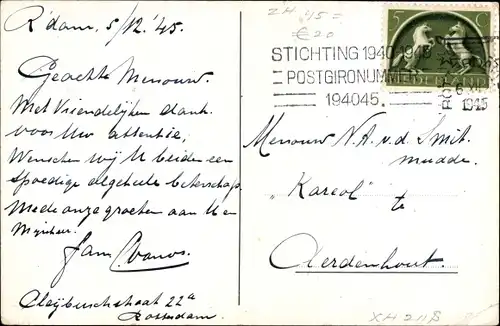 R'dam, 5/12.'45.
Geachte Mevrouw.
Met Vriendelijken dank
voor Uw attentie,
Wenschen wij U beiden een
spoedige algeheele beterschap.
Mede onze groeten aan U en
Mijnheer.
22a
Rotterdam.
ZH 15=
€20
STICHTING 1940-1945
POSTGIRONUMMER
194045.
5 C
NEDERLAND
1945
Mevrouw N.A. v.d. Smit.
"Kareol" te
Aerdenhout.
XH 2118